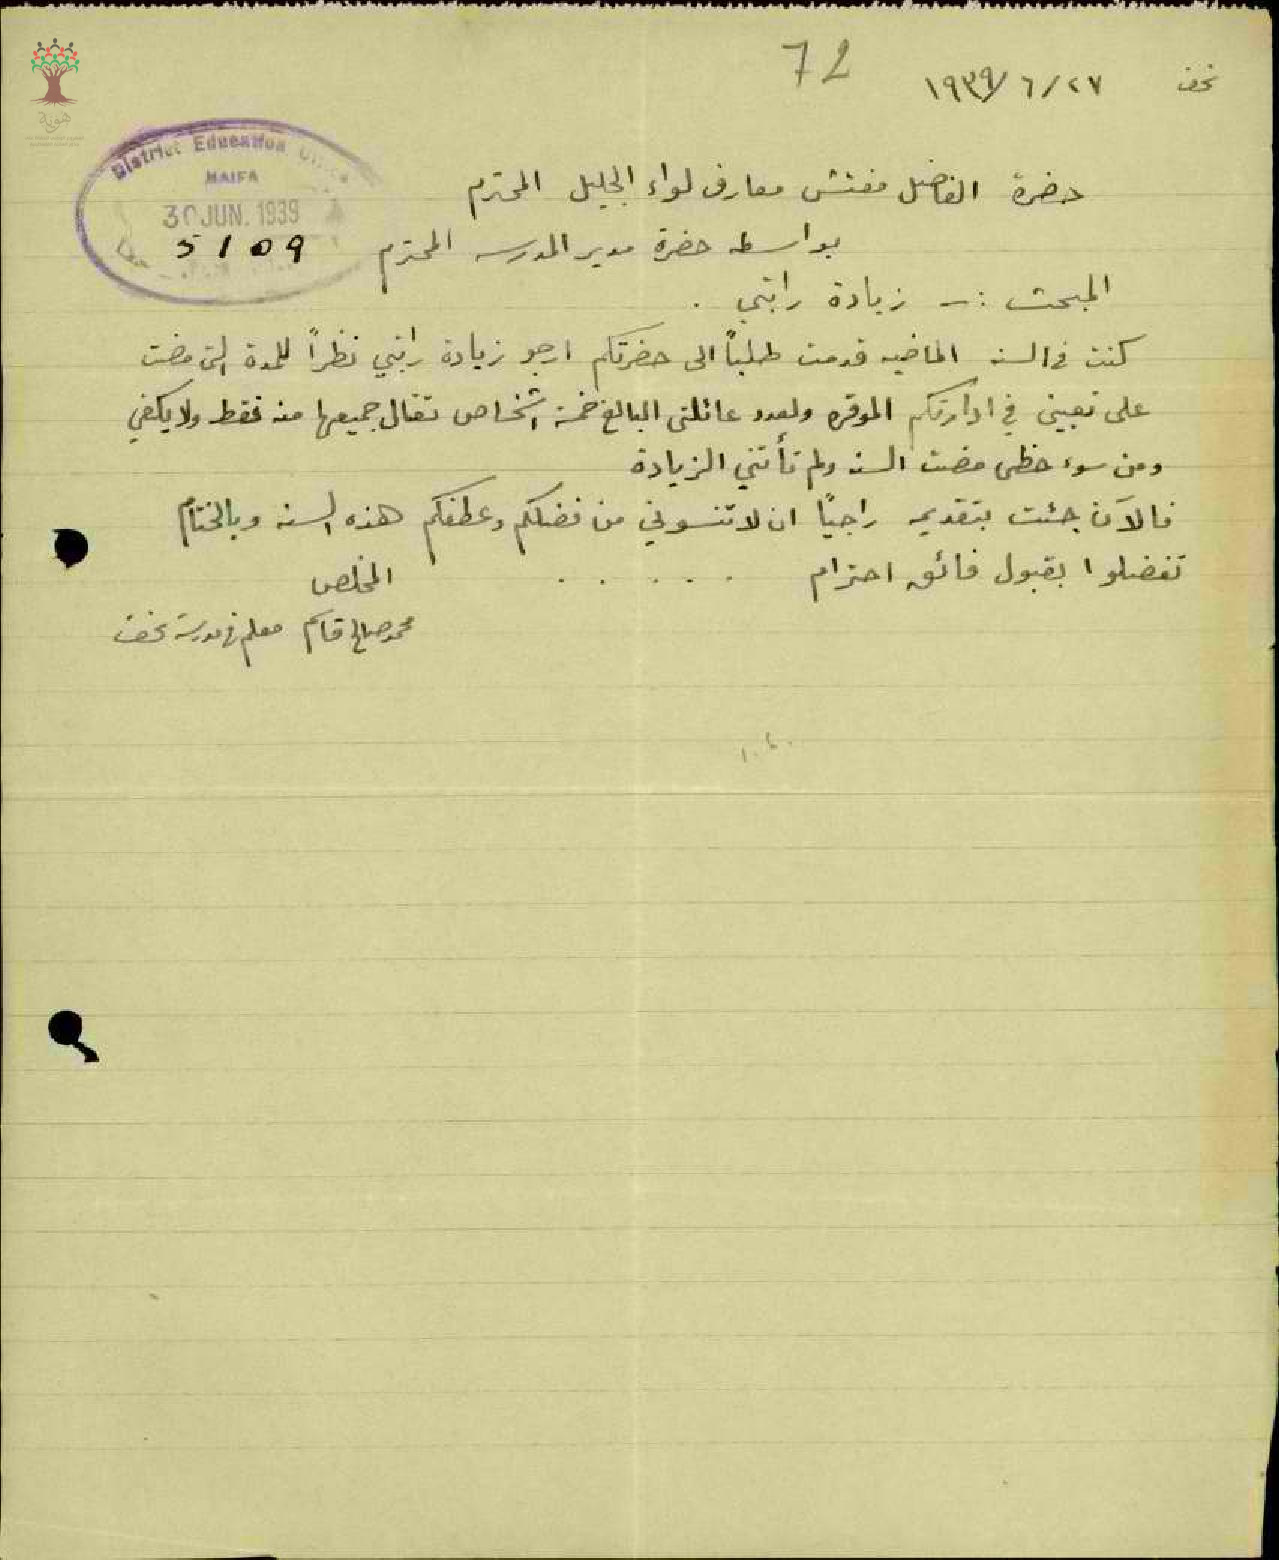 72
نحف ٢٧/٦/١٩٣٩
هوية
District Education Office
HAIFA
30 JUN. 1939
5109
حضرة الفاضل مفتش معارف لواء الجليل المحترم
بواسطه حضرة مدير المدرسه المحترم
المبحث :- زيادة راتبي .
كنت في السنه الماضيه قدمت طلباً الى حضرتكم ارجو زيادة راتبي نظراً للمدة التى مضت
على تعيينى في ادارتكم الموقره ولعدد عائلتى البالغ خمسة اشخاص تعال جميعها منه فقط ولا يكفي
ومن سوء حظى مضت السنه ولم تأتني الزيادة
فالآن جئت بتقديمه راجياً ان لا تنسوني من فضلكم وعطفكم هذه السنه وبالختام
تفضلوا بقبول فائق احترام . . . . .
المخلص
محمد صالح قاسم معلم في مدرسة نحف